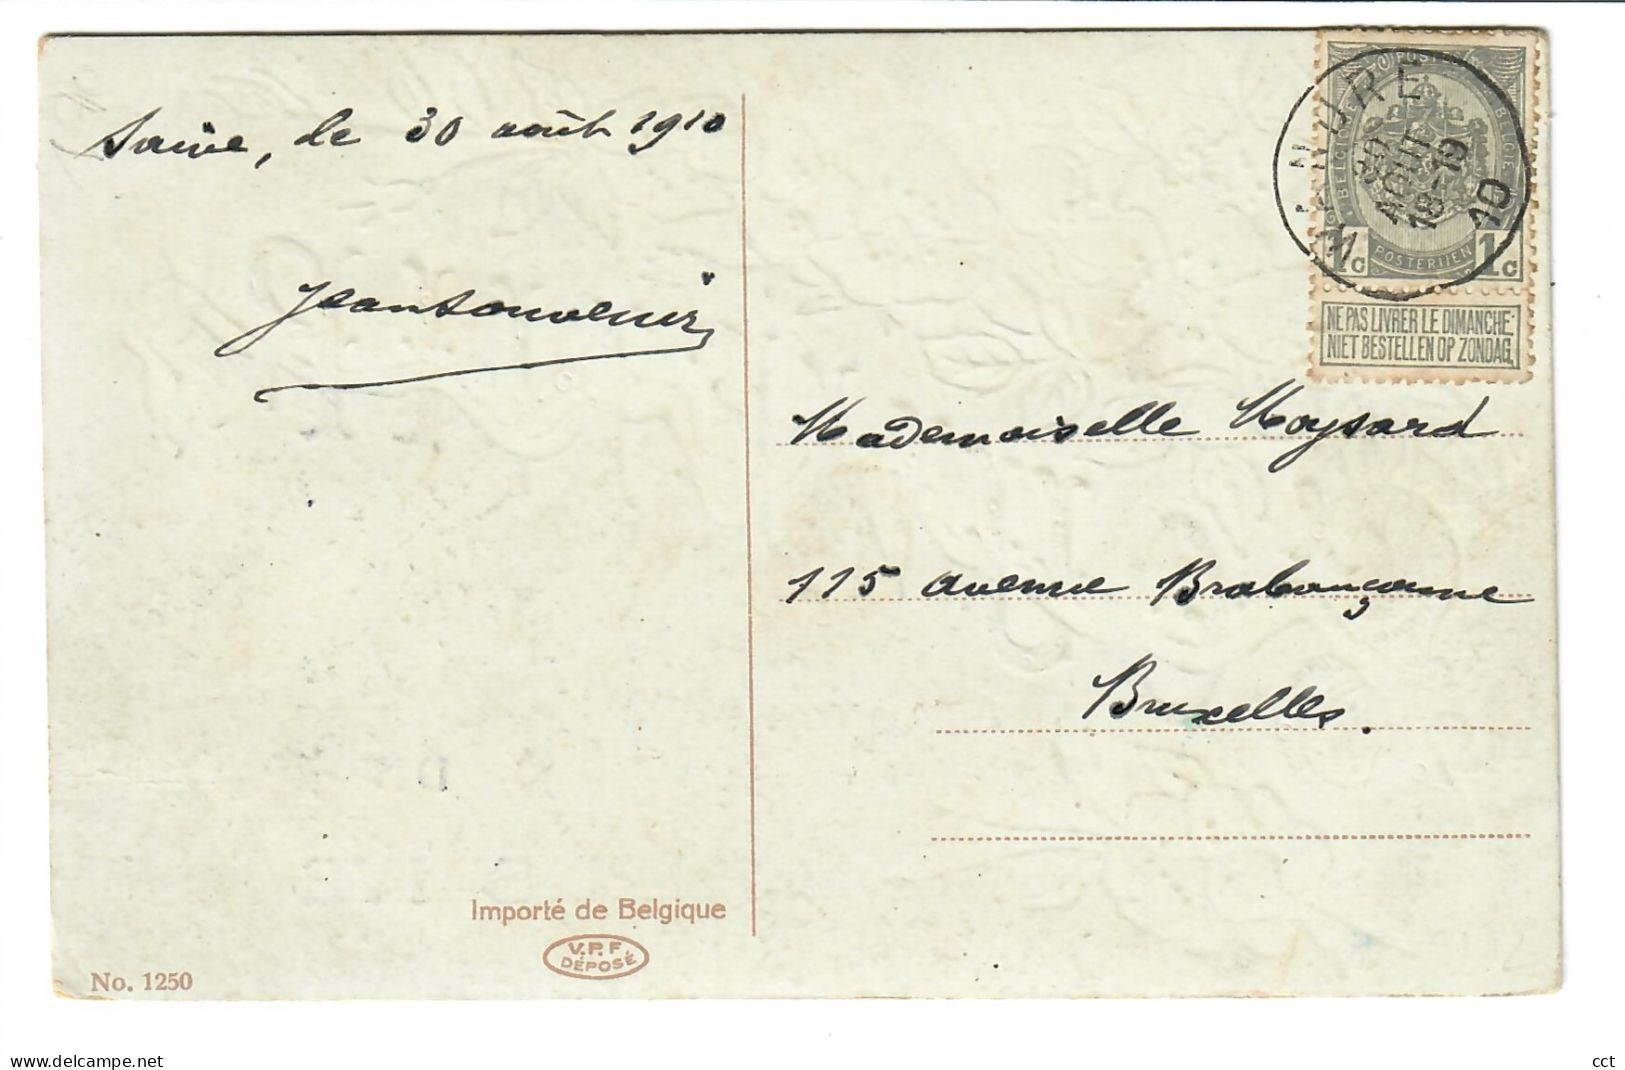 le 30 août 1910
Jean Souvenir
Mademoiselle Moysard
115 avenue Brabançonne
Bruxelles.
POSTERIJEN
1c 1c
NE PAS LIVRER LE DIMANCHE
NIET BESTELLEN OP ZONDAG
30
AOUT
18-19
10
Importé de Belgique
V.P.F.
DÉPOSÉ
No. 1250
www.delcampe.net
cct